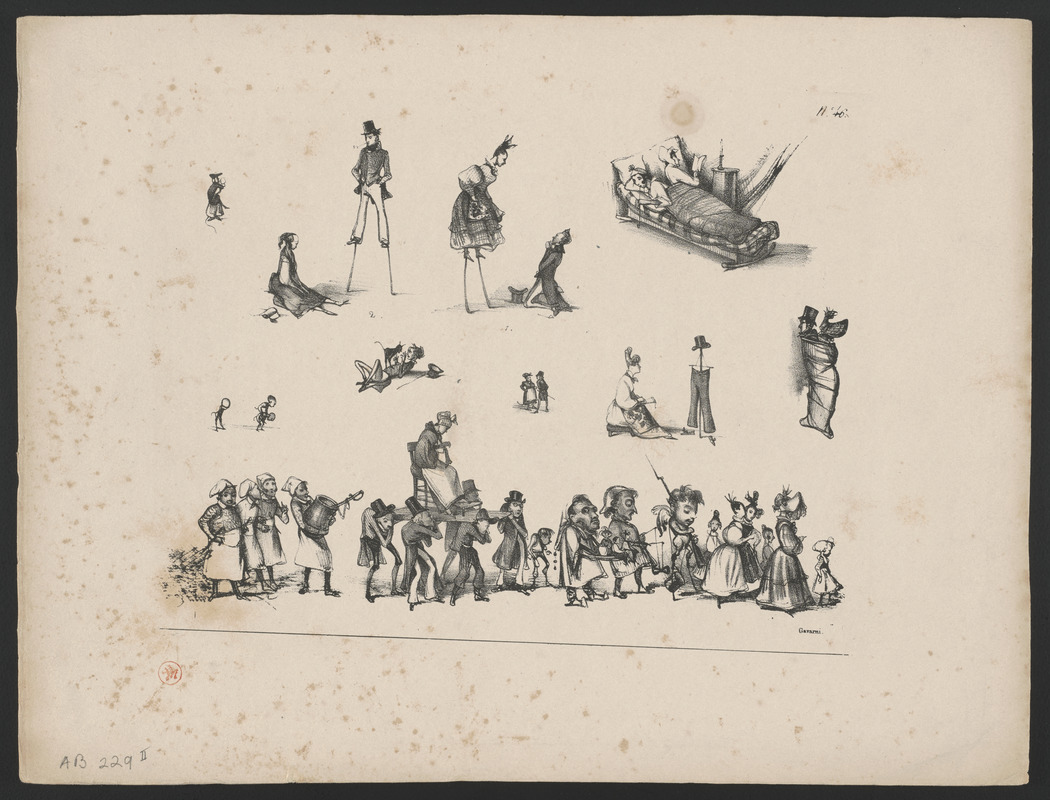 N.º 40.
2.
1.
Gavarni.
AB 229 II